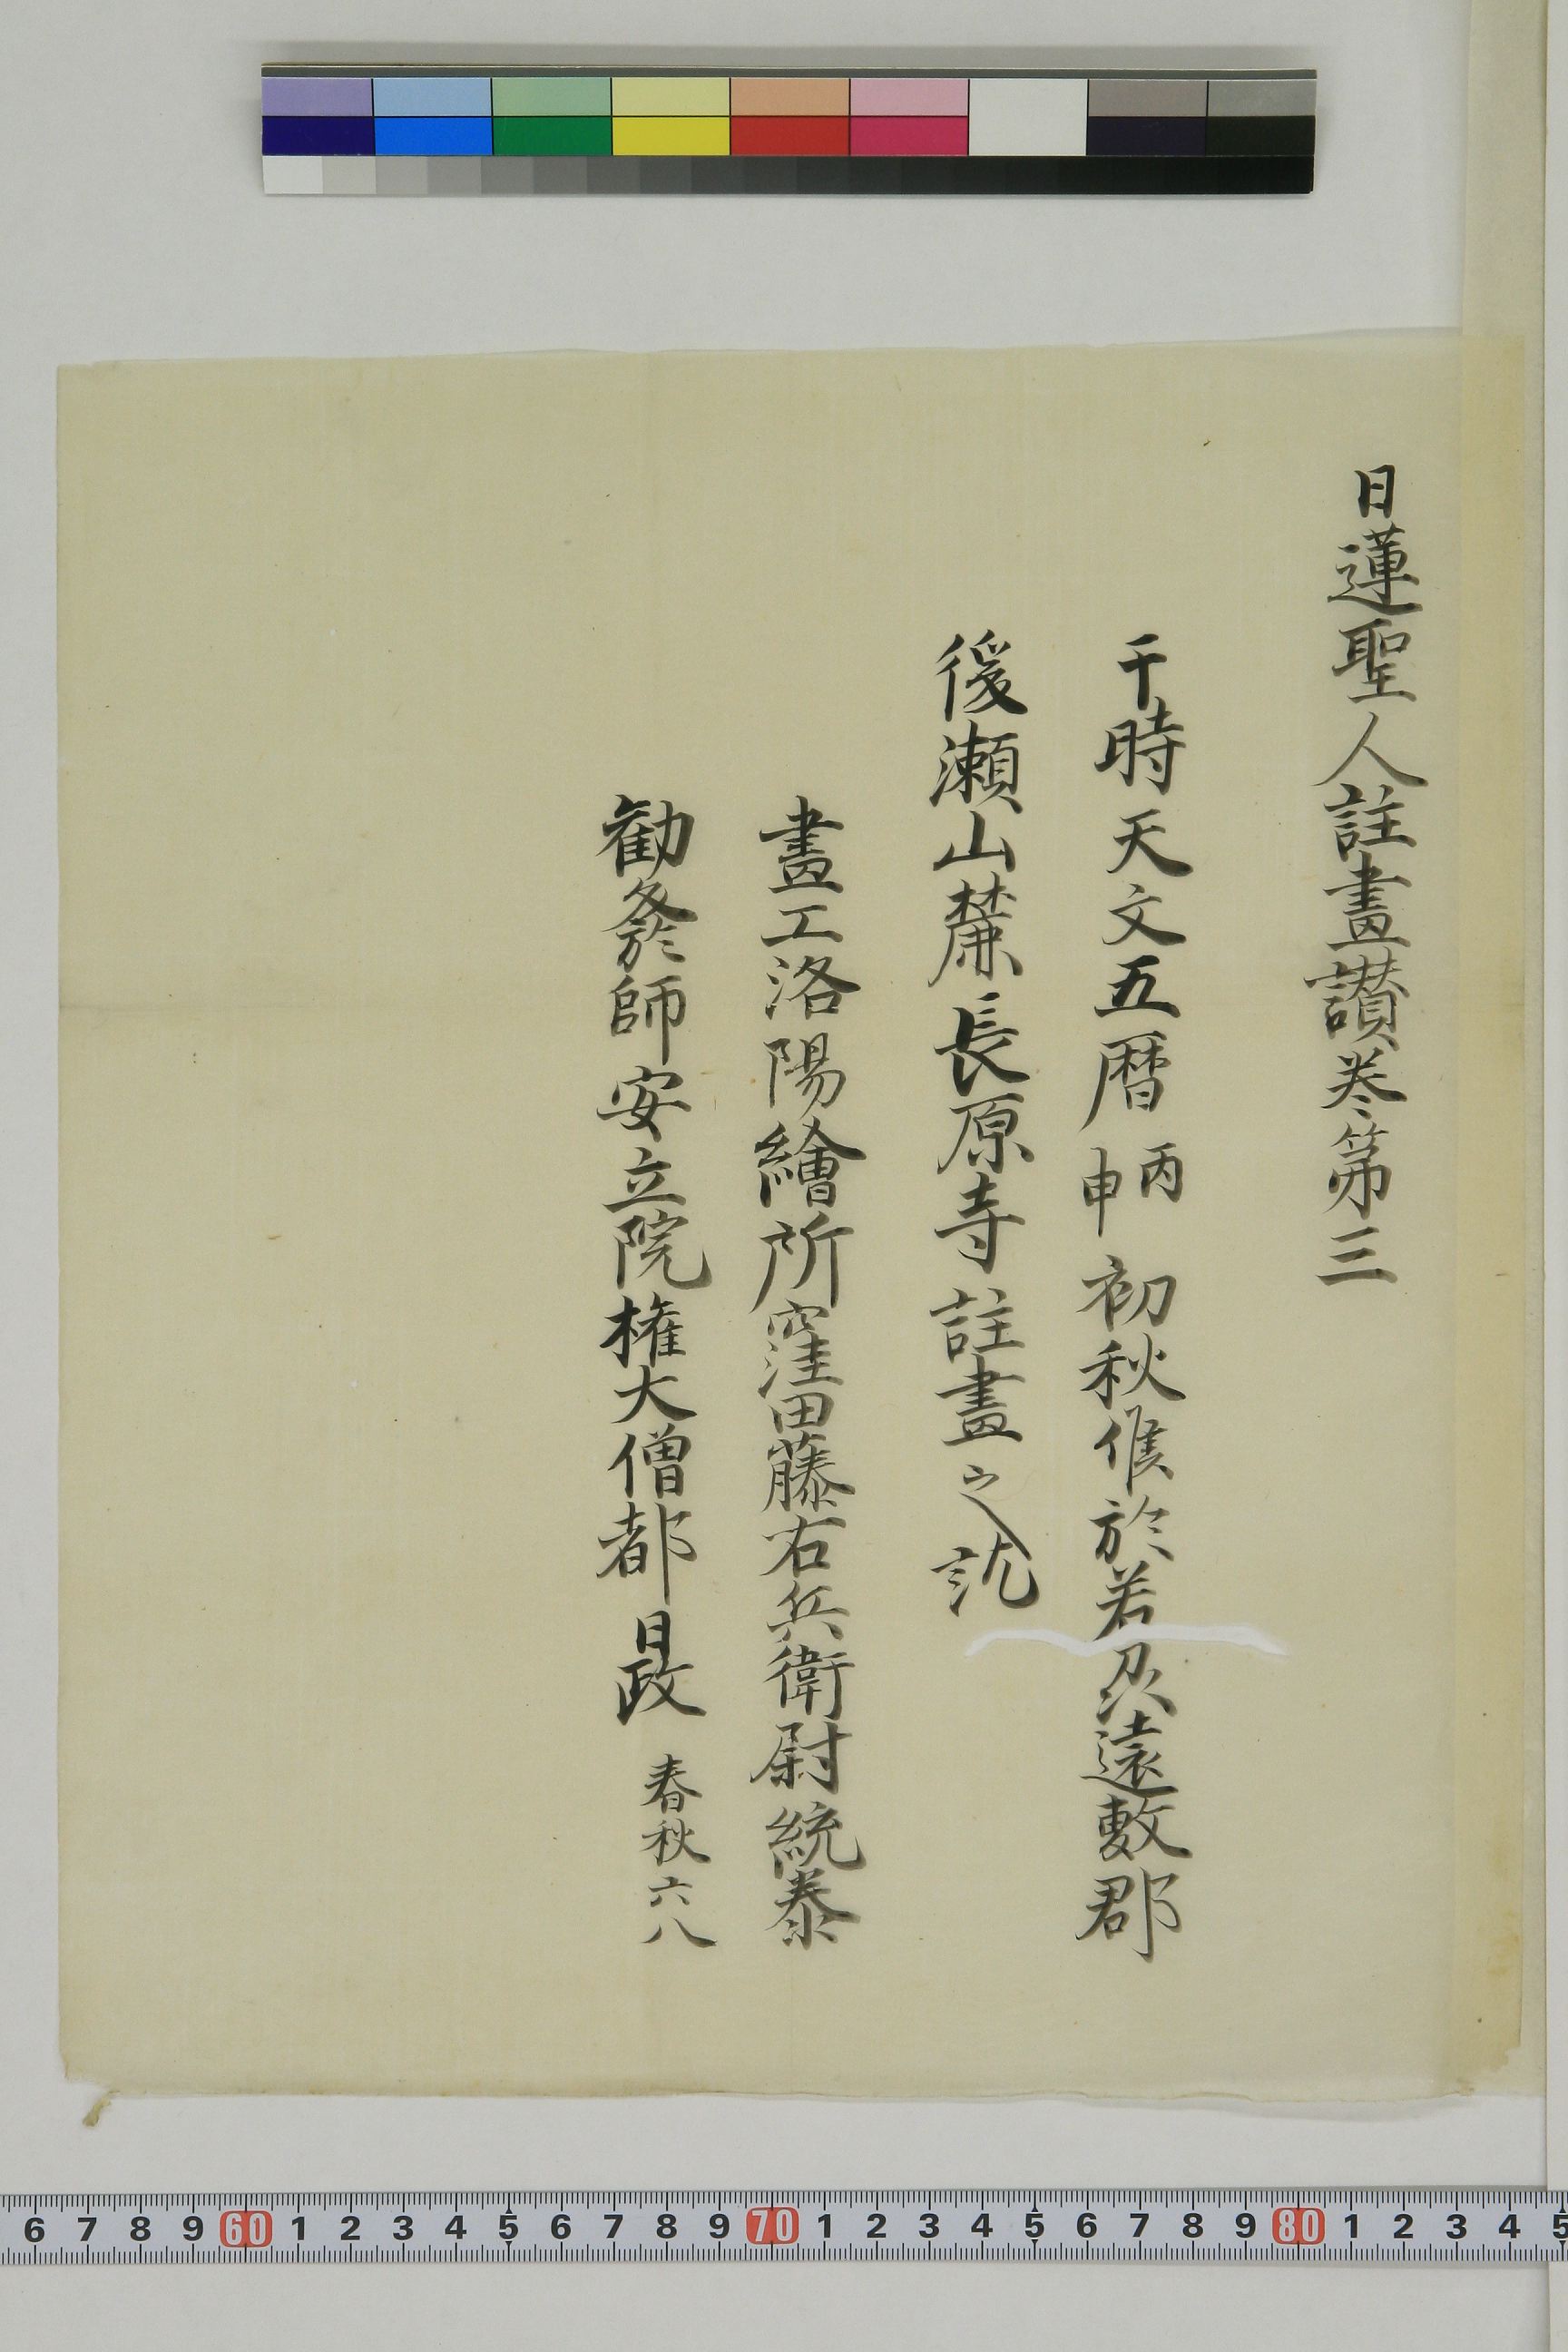 日蓮聖人註畫讃卷第三
于時天文五暦丙申初秋候於若刕遠敷郡
後瀬山麓長原寺註畫之訖
畫工洛陽繪所窪田藤右兵衛尉統泰
勧發師安立院権大僧都日政 春秋六八
6 7 8 9 60 1 2 3 4 5 6 7 8 9 70 1 2 3 4 5 6 7 8 9 80 1 2 3 4 5